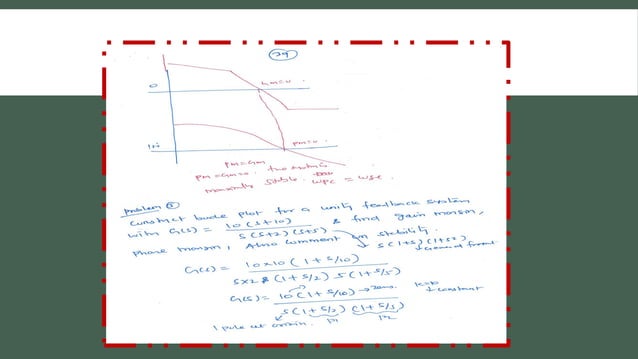 29
0
Gm=0.
180
Pm=0.
Pm=Gm
Pm=Gm=0.
marginally stable. wpc = wgc
Problem ③
Construct bode plot for a unity feedback system
with G(s) = 10(s+10) / s(s+2)(s+5) & find gain margin,
Phase margin, Also comment on stability.
s(1+s)(1+s)
↓ General format
G(s) = 10x10(1+s/10) / s x 2 (1+s/2) 5(1+s/5)
G(s) = 10(1+s/10) → zero. / s(1+s/2)(1+s/5)
K=10
↓ constant
1 pole at origin.